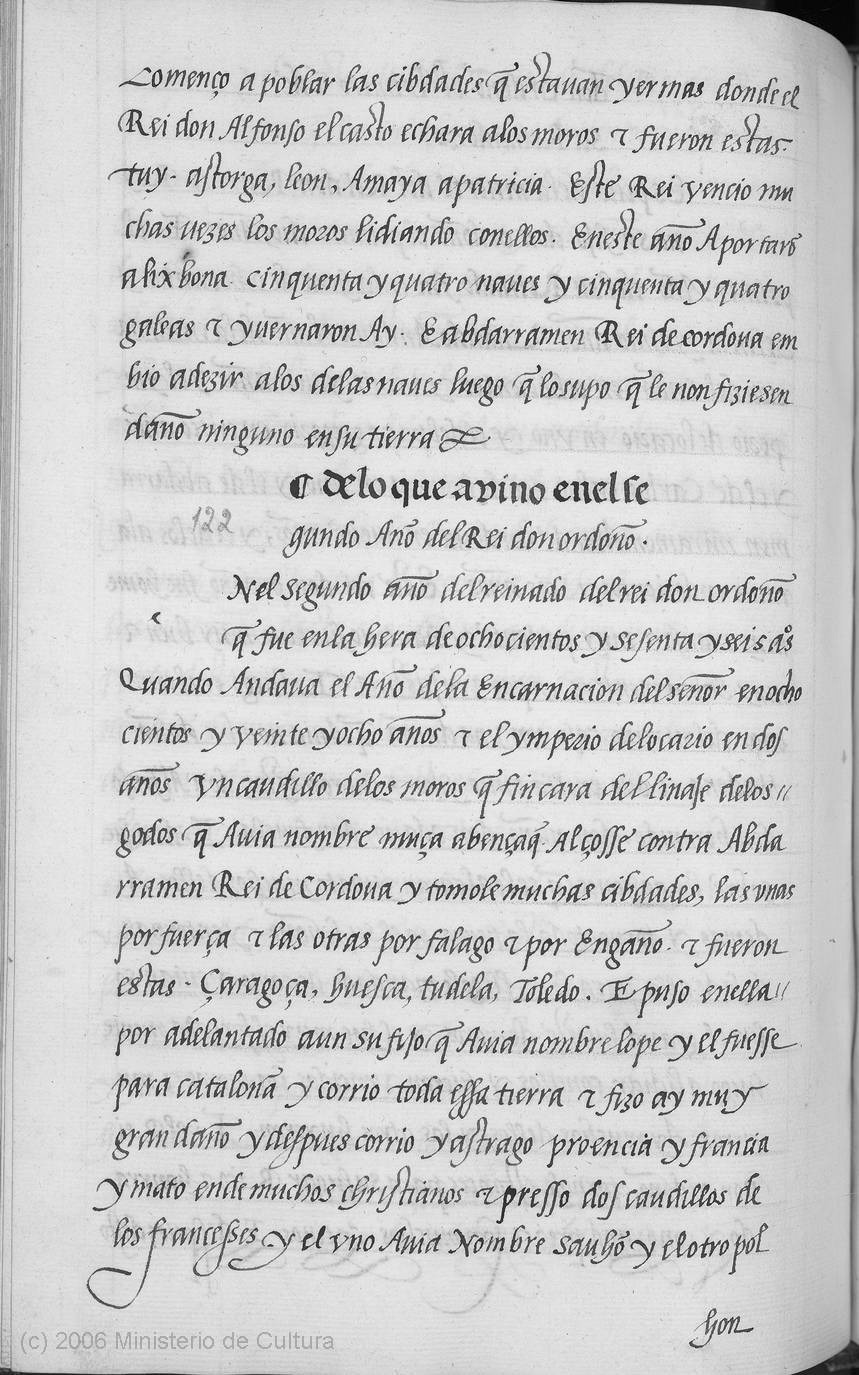 Començo a poblar las cibdades q̃ estauan yermas donde el
Rei don Alfonso el casto echara a los moros τ fueron estas·
tuy· astorga, leon, Amaya a patricia· Este Rei vencio mu
chas uezes los moros lidiando conellos· Eneste año Aportarõ
a lixbona· cinquenta y quatro naues y cinquenta y quatro
galeas τ yuernaron Ay·. E abdarramen Rei de cordoua em
bio adezir a los delas naues luego q̃ lo supo q̃ le non fiziesen
daño ninguno en su tierra
¶ de lo que avino enel se
122
gundo Año del Rei don ordoño·
Nel segundo año del reinado del rei don ordoño
q̃ fue en la hera de ochocientos y sesenta y seis aºs
Quando Andaua el Año dela Encarnacion del señor en ocho
cientos y veinte y ocho años τ el ymperio de locario en dos
años vn caudillo delos moros q̃ fincara del linaje delos //
godos q̃ Auia nombre muça abençaq̃· Alçosse contra Abda
rramen Rei de Cordoua y tomole muchas cibdades, las vnas
por fuerça τ las otras por falago τ por Engaño· τ fueron
estas· Çaragoça, huesca, tudela, Toledo. E puso enella //
por adelantado a un su fijo q̃ Auia nombre lope y el fuesse
para cataloña y corrio toda essa tierra τ fizo ay muy
gran daño y despues corrio y astrago proencia y francia
y mato ende muchos christianos τ presso dos caudillos de
los francesses y el vno Auia Nombre sauhõ y el otro pol
hon
(c) 2006 Ministerio de Cultura